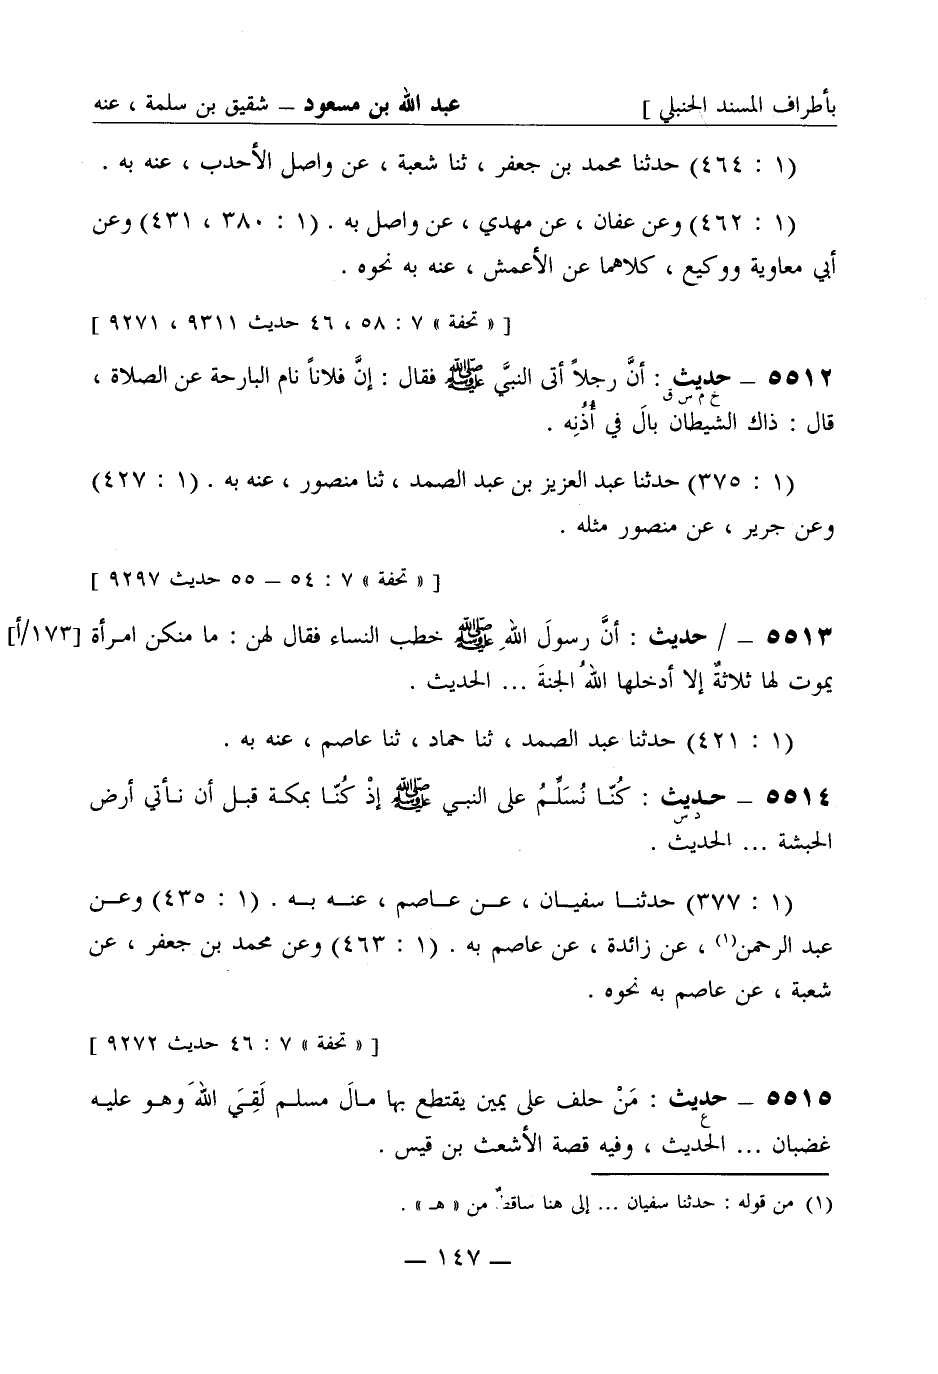 بأطراف المسند الحنبلي ] عبد الله بن مسعود – شقيق بن سلمة ، عنه
(١ : ٤٦٤) حدثنا محمد بن جعفر ، ثنا شعبة ، عن واصل الأحدب ، عنه به .
(١ : ٤٦٢) وعن عفان ، عن مهدي ، عن واصل به . (١ : ٣٨٠ ، ٤٣١) وعن
أبي معاوية ووكيع ، كلاهما عن الأعمش ، عنه به نحوه .
[ « تحفة » ٧ : ٥٨ ، ٤٦ حديث ٩٣١١ ، ٩٢٧١ ]
٥٥١٢ – حديث : أنَّ رجلاً أتى النبيَّ ﷺ فقال : إنَّ فلاناً نام البارحة عن الصلاة ،
خ م س ق
قال : ذاك الشيطان بالَ في أُذُنِه .
(١ : ٣٧٥) حدثنا عبد العزيز بن عبد الصمد ، ثنا منصور ، عنه به . (١ : ٤٢٧)
وعن جرير ، عن منصور مثله .
[ « تحفة » ٧ : ٥٤ – ٥٥ حديث ٩٢٩٧ ]
٥٥١٣ – / حديث : أنَّ رسولَ اللهِ ﷺ خطب النساء فقال لهن : ما منكن امرأة [١٧٣/أ]
يموت لها ثلاثةٌ إلا أدخلها اللهُ الجنةَ ... الحديث .
(١ : ٤٢١) حدثنا عبد الصمد ، ثنا حماد ، ثنا عاصم ، عنه به .
٥٥١٤ – حديث : كُنّا نُسَلِّمُ على النبي ﷺ إذْ كُنّا بمكة قبل أن نأتي أرض
د س
الحبشة ... الحديث .
(١ : ٣٧٧) حدثنا سفيان ، عن عاصم ، عنه به . (١ : ٤٣٥) وعن
عبد الرحمن(١) ، عن زائدة ، عن عاصم به . (١ : ٤٦٣) وعن محمد بن جعفر ، عن
شعبة ، عن عاصم به نحوه .
[ « تحفة » ٧ : ٤٦ حديث ٩٢٧٢ ]
٥٥١٥ – حديث : مَنْ حلف على يمين يقتطع بها مالَ مسلم لَقِيَ اللهَ وهو عليه
ع
غضبان ... الحديث ، وفيه قصة الأشعث بن قيس .
(١) من قوله : حدثنا سفيان ... إلى هنا ساقطٌ من « هـ » .
– ١٤٧ –